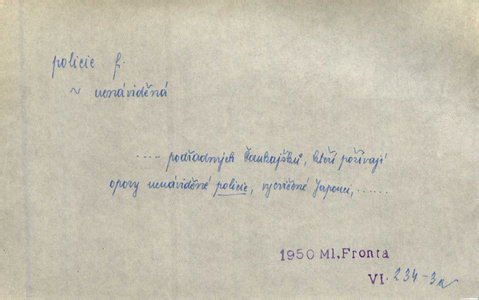 policie f.
~ nenáviděná
.... podřadných Čankajšků, kteří požívají
opory nenáviděné policie, vycvičené Japonci, ......
1950 Ml. Fronta
VI. 234-3